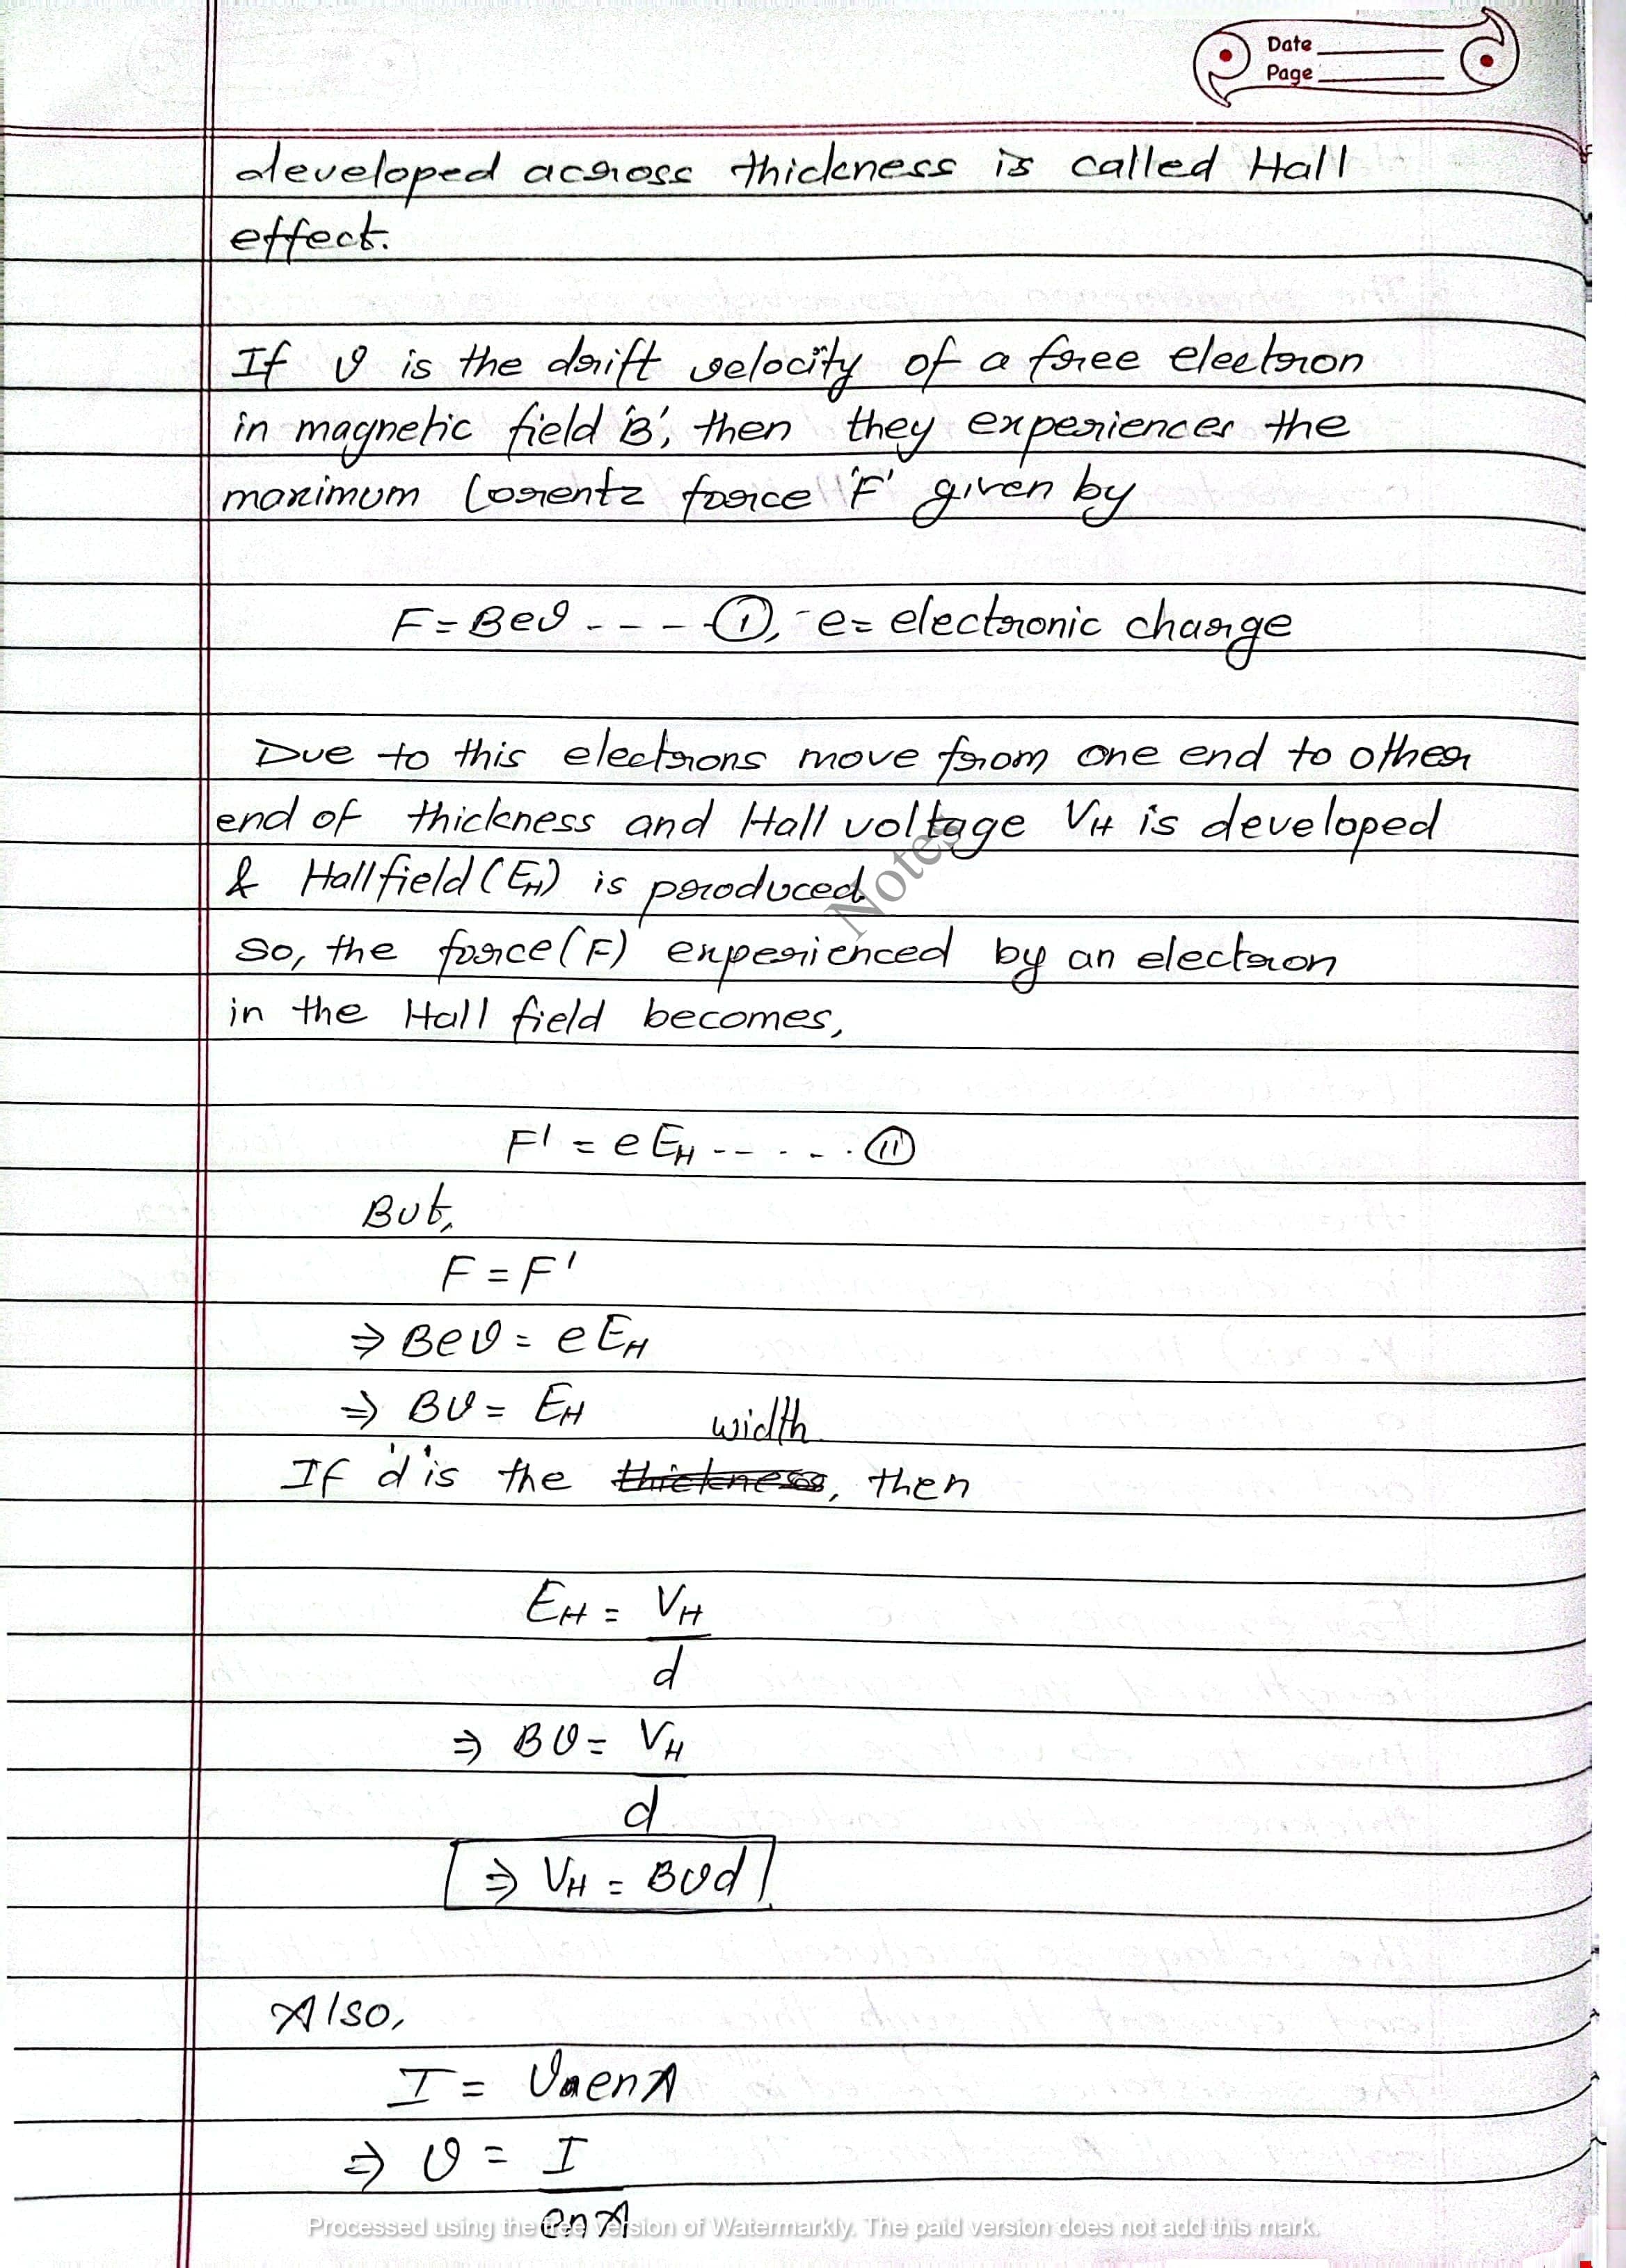 Date
Page
developed across thickness is called Hall
effect.
If v is the drift velocity of a free electron
in magnetic field 'B', then they experiences the
maximum Lorentz force 'F' given by
F = Bev ---- (I), e = electronic charge
Due to this electrons move from one end to other
end of thickness and Hall voltage VH is developed
& Hall field (EH) is produced.
Notes
So, the force (F) experienced by an electron
in the Hall field becomes,
F' = e EH ------ (II)
But,
F = F'
⇒ Bev = e EH
⇒ Bv = EH
width
If 'd' is the thickness, then
EH = VH
d
⇒ Bv = VH
d
⇒ VH = Bvd
Also,
I = venA
⇒ v = I
enA
Processed using the free version of Watermarkly. The paid version does not add this mark.